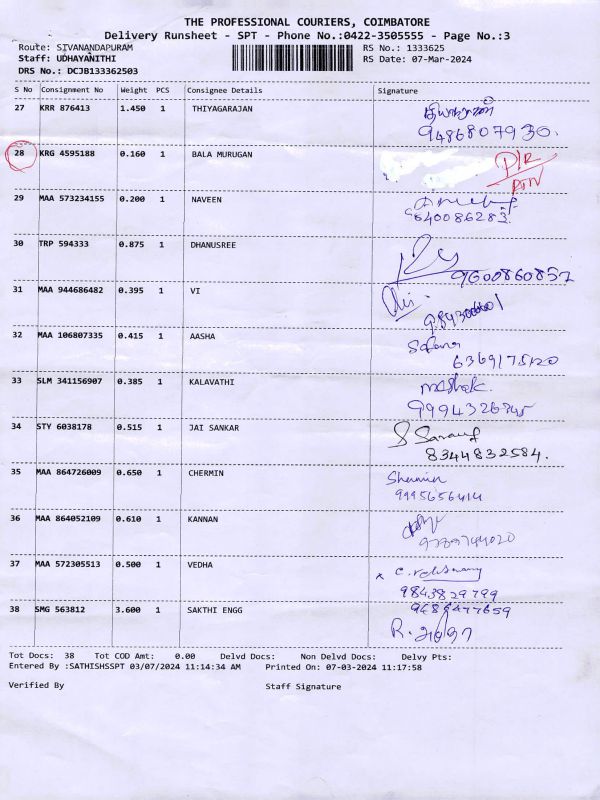 THE PROFESSIONAL COURIERS, COIMBATORE
Delivery Runsheet - SPT - Phone No.:0422-3505555 - Page No.:3
Route: SIVANANDAPURAM RS No.: 1333625
Staff: UDHAYANITHI RS Date: 07-Mar-2024
DRS No.: DCJB133362503
S No Consignment No Weight PCS Consignee Details Signature
27 KRR 876413 1.450 1 THIYAGARAJAN
9486807930.
28 KRG 4595188 0.160 1 BALA MURUGAN
29 MAA 573234155 0.200 1 NAVEEN
9640086283.
30 TRP 594333 0.875 1 DHANUSREE
9600860857
31 MAA 944686482 0.395 1 VI
32 MAA 106807335 0.415 1 AASHA
6369175120
33 SLM 341156907 0.385 1 KALAVATHI
34 STY 6038178 0.515 1 JAI SANKAR
8344832584.
35 MAA 864726009 0.650 1 CHERMIN
9995656414
36 MAA 864052109 0.610 1 KANNAN
9789744020
37 MAA 572305513 0.500 1 VEDHA
9843829799
38 SMG 563812 3.600 1 SAKTHI ENGG
9488477659
Tot Docs: 38 Tot COD Amt: 0.00 Delvd Docs: Non Delvd Docs: Delvy Pts:
Entered By :SATHISHSSPT 03/07/2024 11:14:34 AM Printed On: 07-03-2024 11:17:58
Verified By Staff Signature